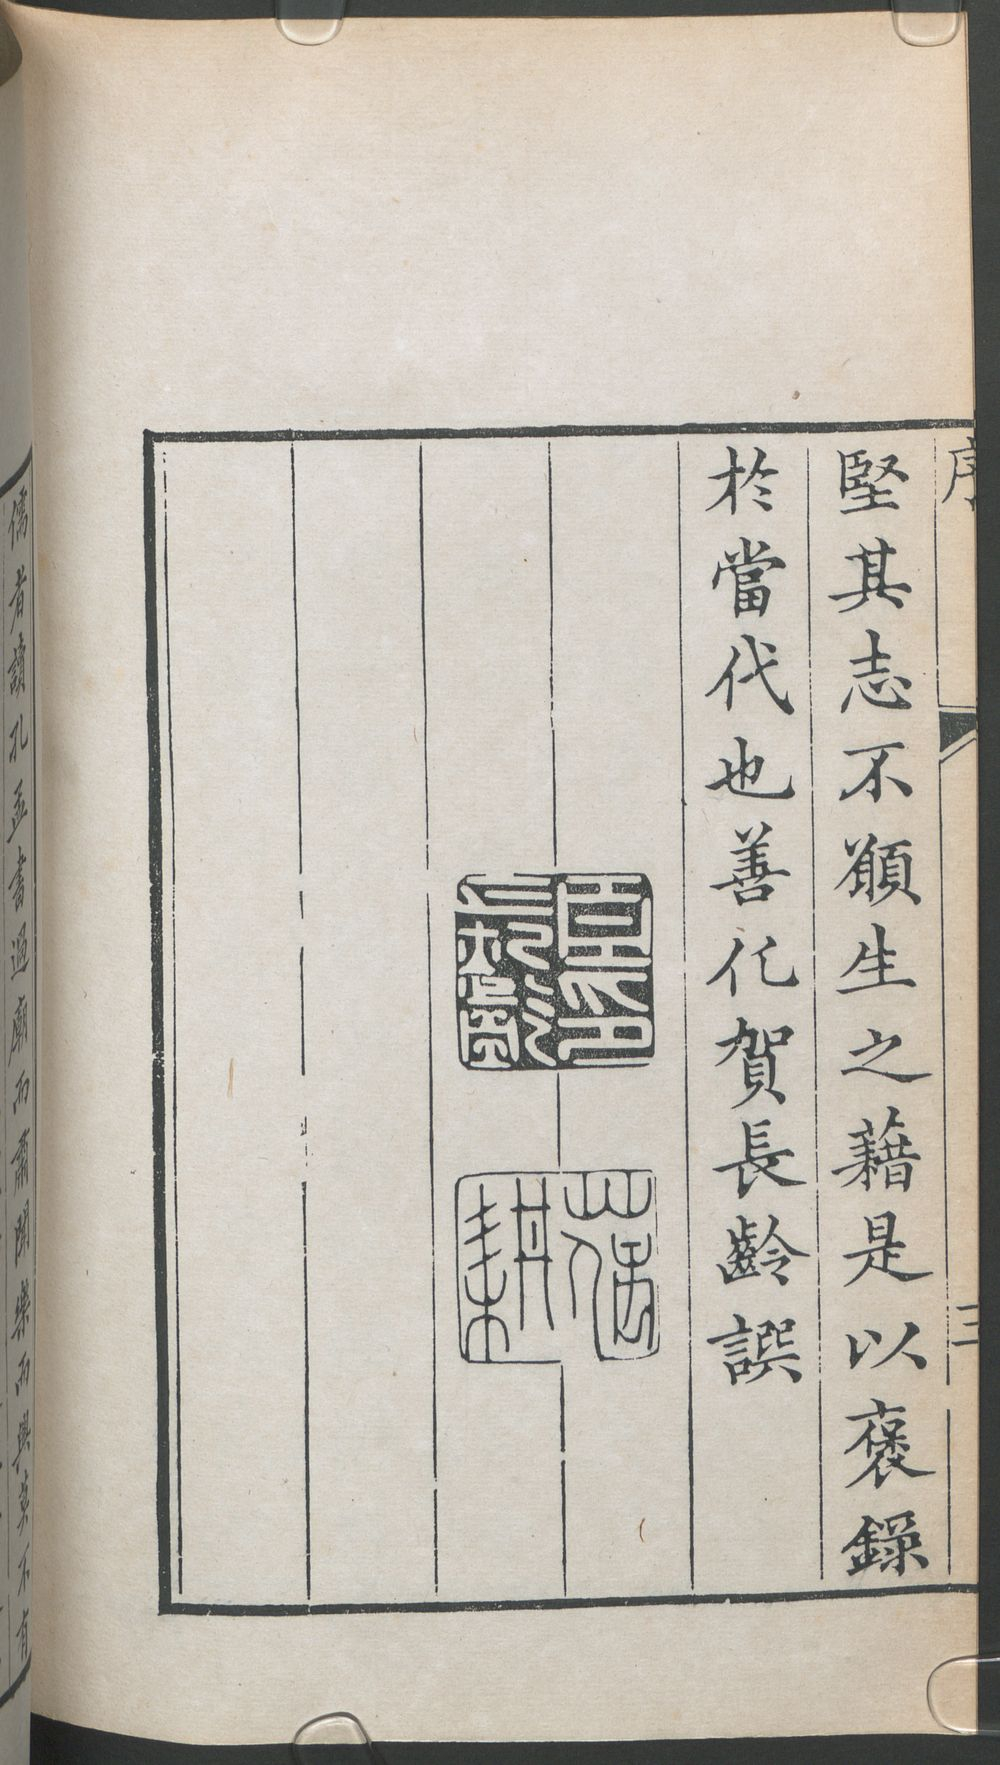 序
三
堅其志不顧生之藉是以褒錄
於當代也善化賀長齡譔
儒者讀孔孟書過廟而肅聞樂而興莫不有